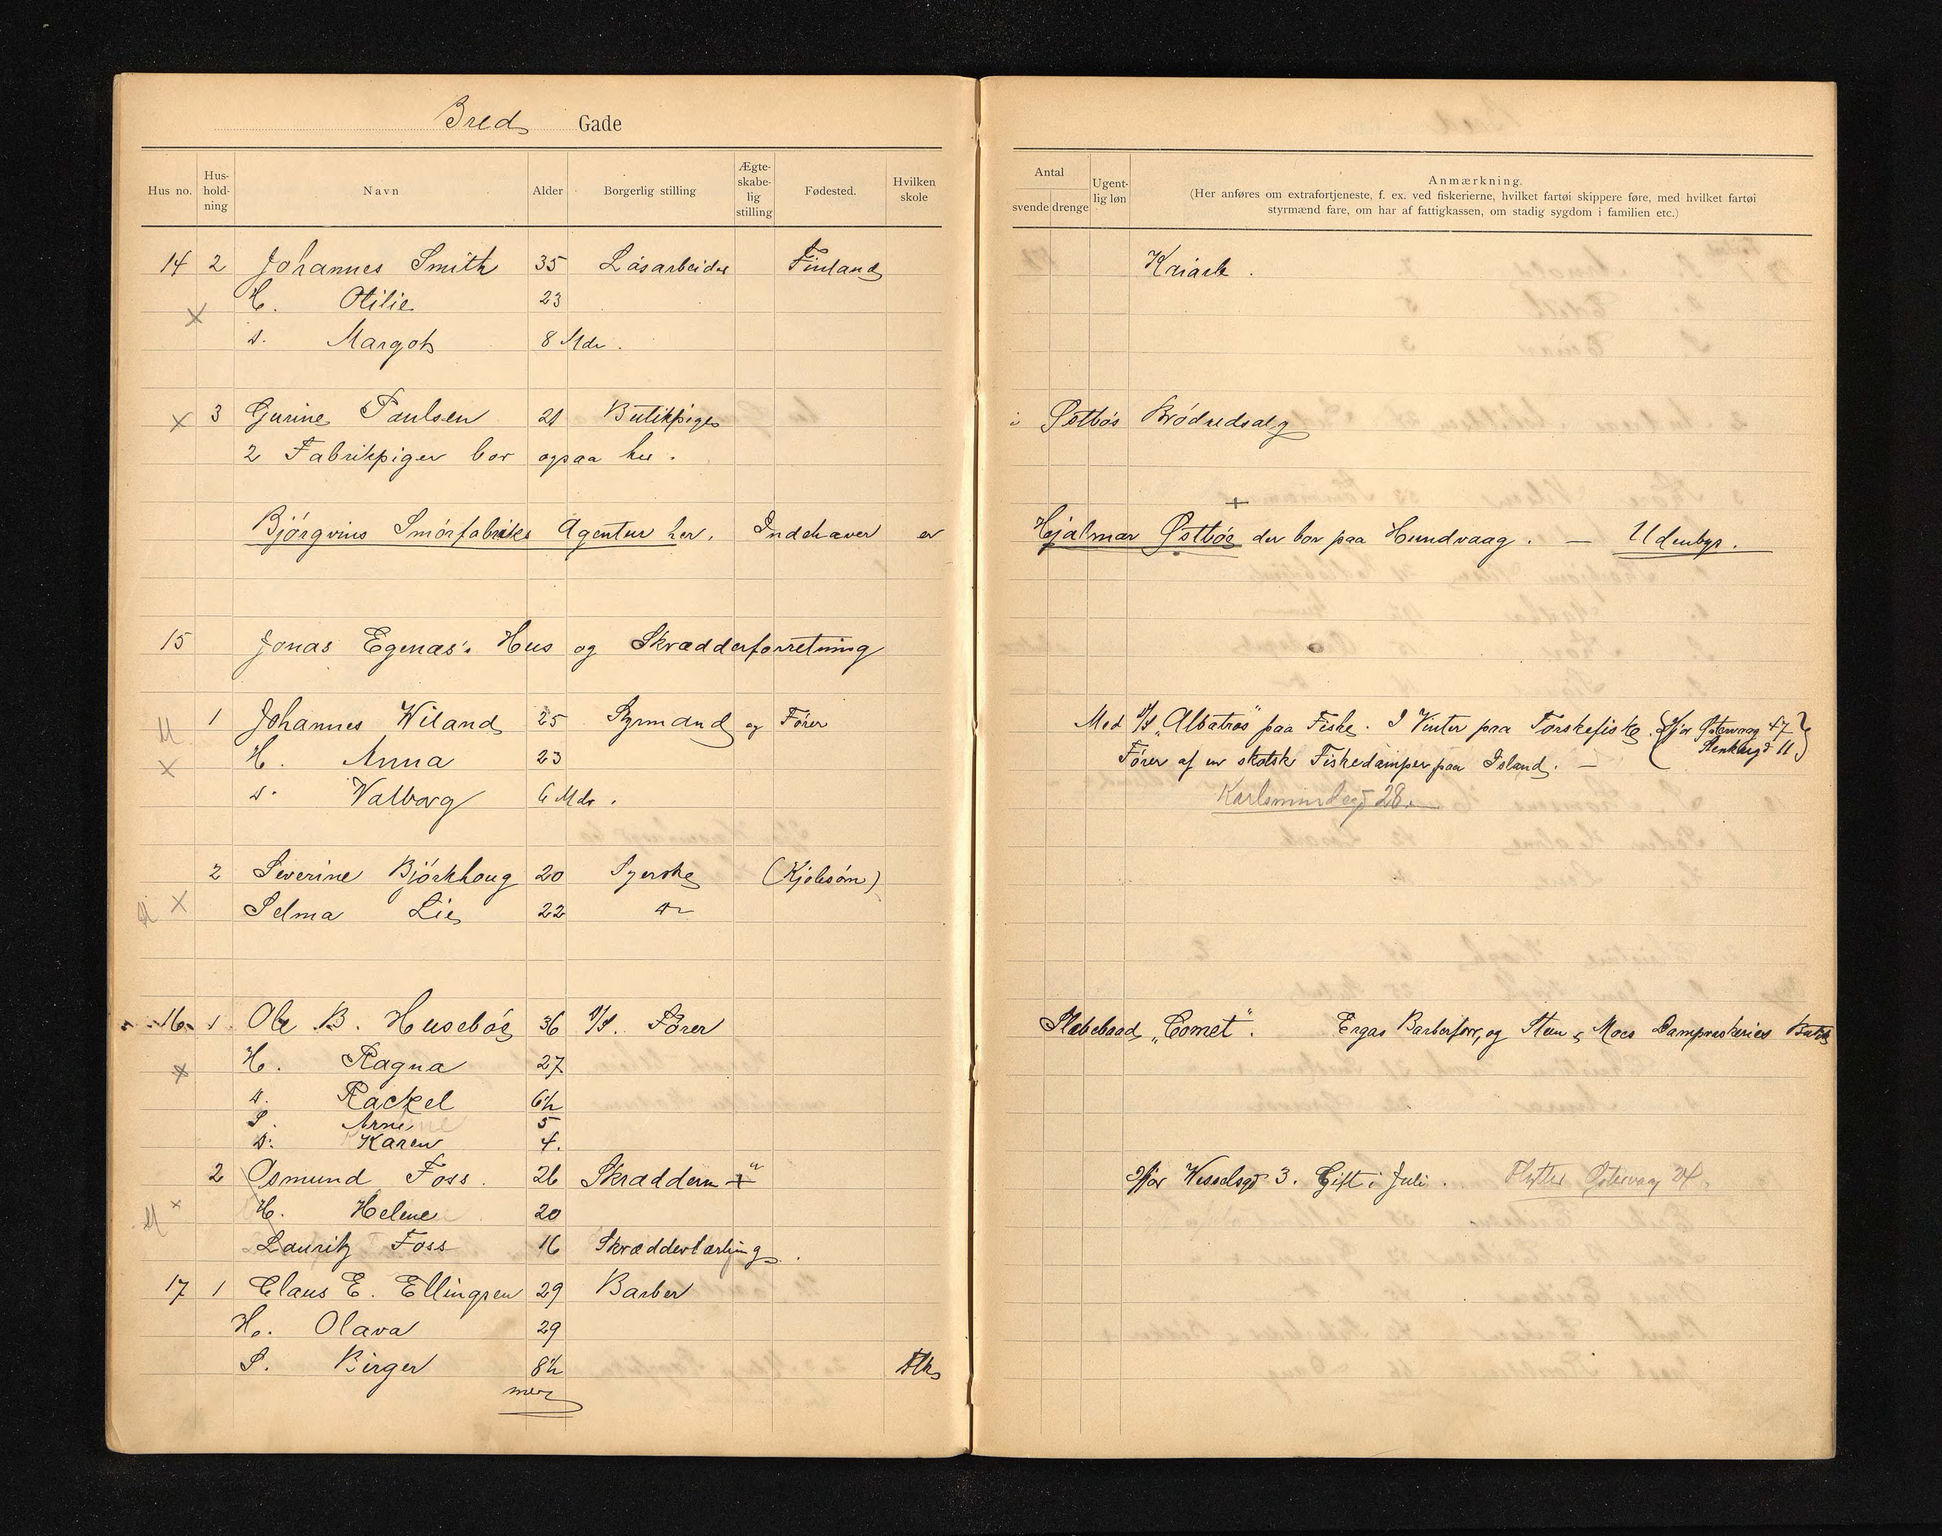 Bred Gade
Hus no. Hus-hold-ning Navn Alder Borgerlig stilling Ægte-skabe-lig stilling Fødested. Hvilken skole
Antal svende drenge Ugent-lig løn Anmærkning.
(Her anføres om extrafortjeneste, f. ex. ved fiskerierne, hvilket fartøi skippere føre, med hvilket fartøi
styrmænd fare, om har af fattigkassen, om stadig sygdom i familien etc.)
14 2 Johannes Smith 35 Løsarbeider Finland
H. Otilie 23
D. Margot 8 Mdr.
3 Gurine Paulsen 21 Butikpige i Østbøs Brødudsalg
2 Fabrikpiger bor ogsaa her.
Bjørgvins Smørfabriks Agentur her. Indehaver er Hjalmar Østbøe der bor paa Hundvaag. — Udenbys.
15 Jonas Egenæs's Hus og Skrædderforretning
1 Johannes Wiland 25 Styrmand og Fører Med D/S "Albatros" paa Fiske. I Vinter paa Torskefiske. (Ifjor Østervaag 47
H. Anna 23 Fører af en skotsk Fiskedamper paa Island. —
D. Valborg 6 Mdr. Karlsmindegd 28.
2 Severine Bjørkhoug 20 Syerske (Kjolesøm)
Selma Lie 22
16 1 Ole B. Husebøe 36 D/S. Fører Slæbebaad "Comet". Ergas Barberforr, og Steen & Moes
H. Ragna 27
D. Rackel 6½
S. Arne 5
D. Karen 4.
2 Osmund Foss. 26 Skræddersv Ifjor Wesselsgd 3. Gift i Juli. Flytter Østervaag 24.
H. Helene 20
Lauritz Foss 16 Skrædderlærling.
17 1 Claus E. Ellingsen 29 Barber
H. Olava 29
S. Birger 8½ Flks
mer